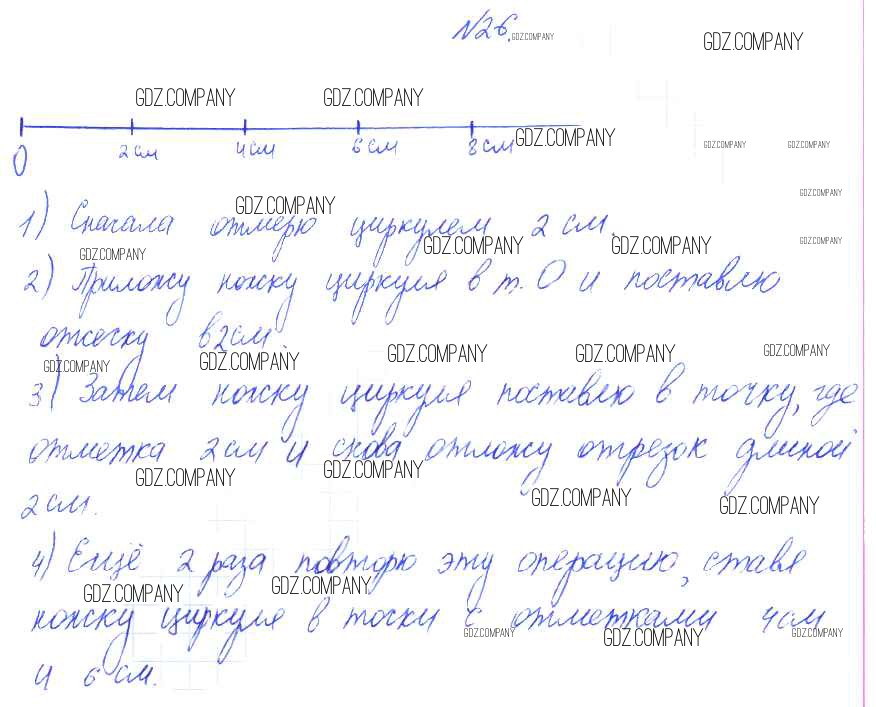 №26.
GDZ.COMPANY
GDZ.COMPANY
GDZ.COMPANY GDZ.COMPANY
GDZ.COMPANY
GDZ.COMPANY GDZ.COMPANY
0 2см 4см 6см 8см
GDZ.COMPANY
GDZ.COMPANY
1) Сначала отмерю циркулем 2 см.
GDZ.COMPANY GDZ.COMPANY GDZ.COMPANY GDZ.COMPANY
2) Приложу ножку циркуля в т. О и поставлю
отсечку в 2см.
GDZ.COMPANY GDZ.COMPANY GDZ.COMPANY GDZ.COMPANY GDZ.COMPANY
3) Затем ножку циркуля поставлю в точку, где
отметка 2см и снова отложу отрезок длиной
GDZ.COMPANY GDZ.COMPANY
2см.
GDZ.COMPANY GDZ.COMPANY
4) Ещё 2 раза повторю эту операцию, ставя
GDZ.COMPANY GDZ.COMPANY
ножку циркуля в точки с отметками 4см
GDZ.COMPANY GDZ.COMPANY GDZ.COMPANY
и 6 см.